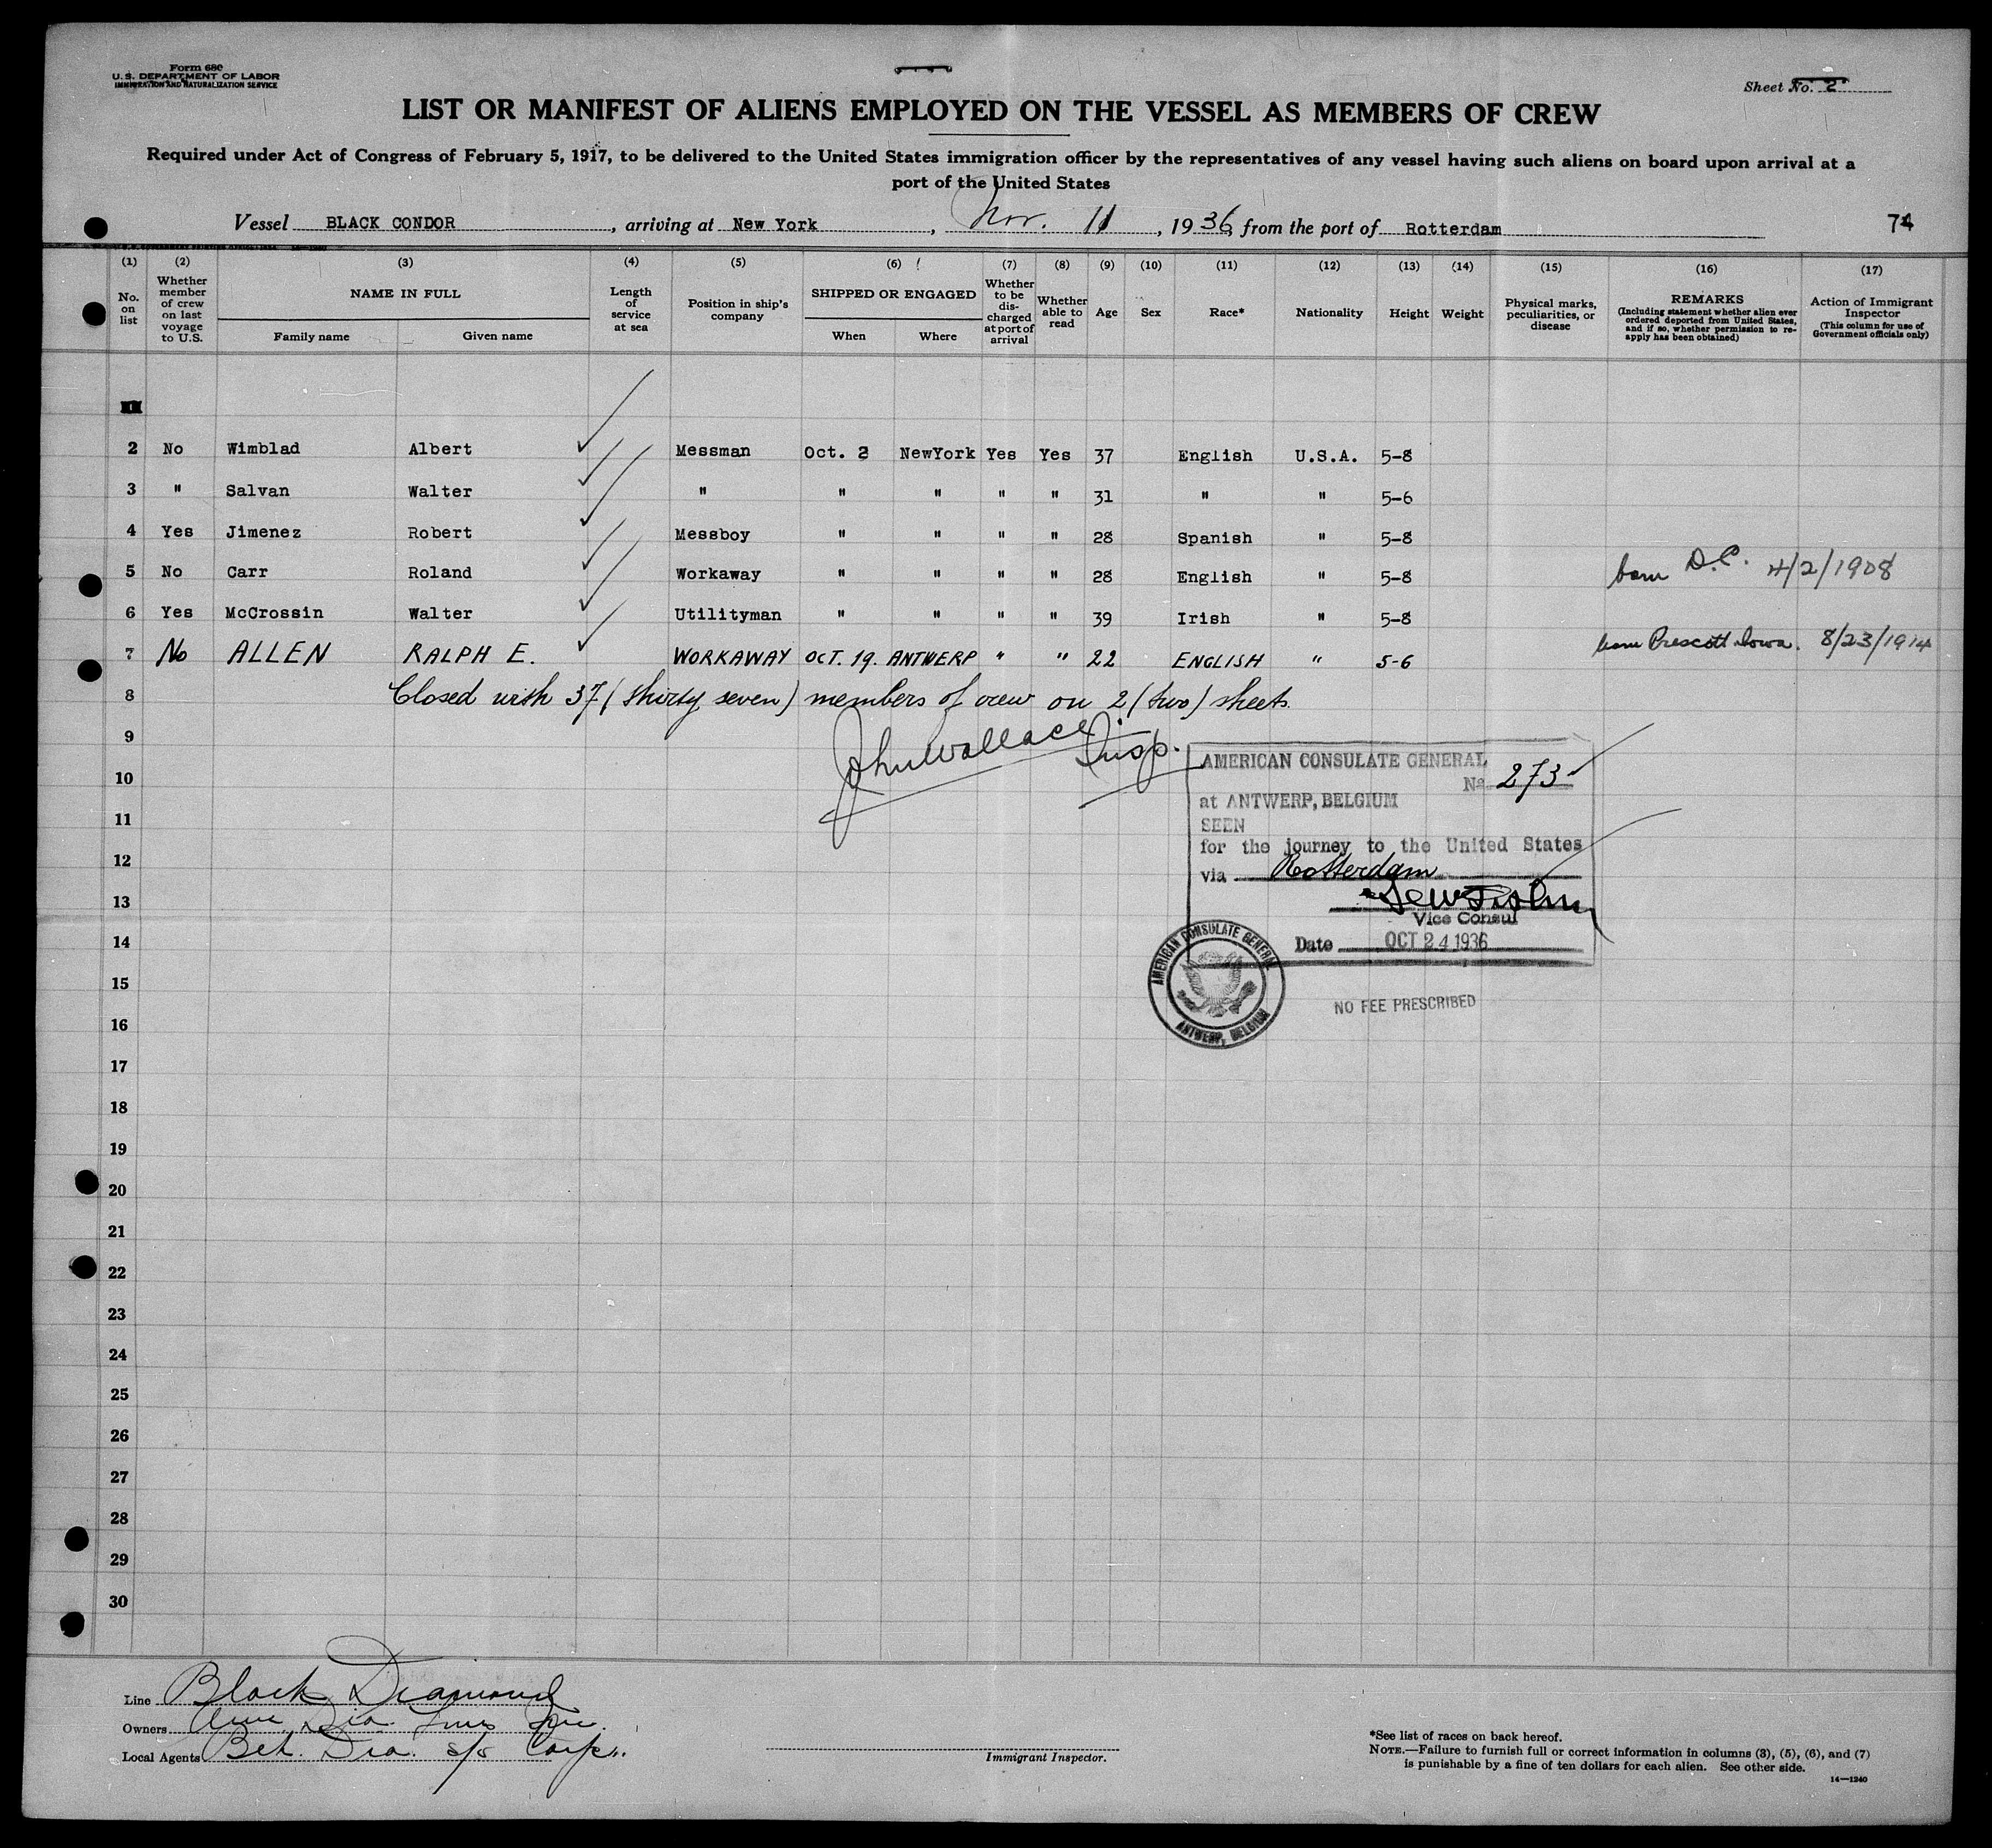 Form 680
U. S. DEPARTMENT OF LABOR
IMMIGRATION AND NATURALIZATION SERVICE
Sheet No. 2
LIST OR MANIFEST OF ALIENS EMPLOYED ON THE VESSEL AS MEMBERS OF CREW
Required under Act of Congress of February 5, 1917, to be delivered to the United States immigration officer by the representatives of any vessel having such aliens on board upon arrival at a
port of the United States
Vessel BLACK CONDOR, arriving at New York, Nov. 11, 1936, from the port of Rotterdam 74
(1) (2) (3) (4) (5) (6) (7) (8) (9) (10) (11) (12) (13) (14) (15) (16) (17)
No. on list
Whether member of crew on last voyage to U.S.
NAME IN FULL
Family name Given name
Length of service at sea
Position in ship's company
SHIPPED OR ENGAGED
When Where
Whether to be discharged at port of arrival
Whether able to read
Age Sex Race* Nationality Height Weight
Physical marks, peculiarities, or disease
REMARKS
(Including statement whether alien ever ordered deported from United States, and if so, whether permission to re-apply has been obtained)
Action of Immigrant Inspector
(This column for use of Government officials only)
2 No Wimblad Albert Messman Oct. 2 NewYork Yes Yes 37 English U.S.A. 5-8
3 " Salvan Walter " " " " " 31 " " 5-6
4 Yes Jimenez Robert Messboy " " " " 28 Spanish " 5-8
5 No Carr Roland Workaway " " " " 28 English " 5-8 born D.C. 4/2/1908
6 Yes McCrossin Walter Utilityman " " " " 39 Irish " 5-8
7 No ALLEN RALPH E. WORKAWAY OCT. 19. ANTWERP " " 22 ENGLISH " 5-6 born Prescott Iowa. 8/23/1914
8 Closed with 37 (thirty seven) members of crew on 2 (two) sheets.
9
John Wallace Insp.
10
11
12
13
14
15
16
17
18
19
20
21
22
23
24
25
26
27
28
29
30
AMERICAN CONSULATE GENERAL
No. 273
at ANTWERP, BELGIUM
SEEN
for the journey to the United States
via Rotterdam
Vice Consul
Date OCT 24 1936
AMERICAN CONSULATE GENERAL
ANTWERP, BELGIUM
NO FEE PRESCRIBED
Line Black Diamond
Owners Am. Dia. Lines Inc.
Local Agents Dia. S/S Corp.
Immigrant Inspector.
*See list of races on back hereof.
NOTE.—Failure to furnish full or correct information in columns (3), (5), (6), and (7)
is punishable by a fine of ten dollars for each alien. See other side.
14—1240